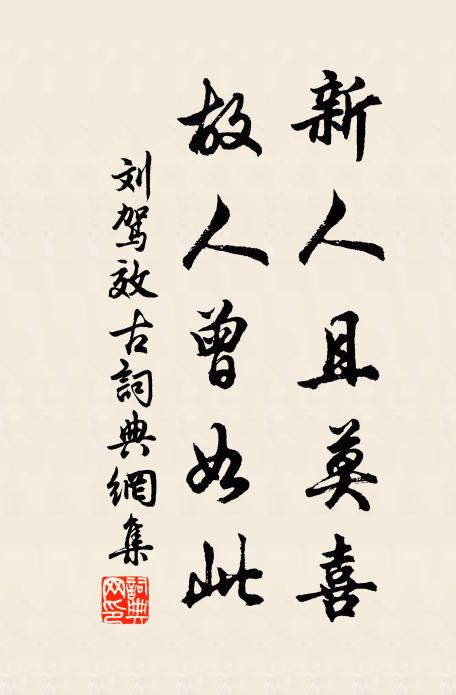 新人且莫喜
故人曾如此
刘驾效古詞典網集
詞典網印